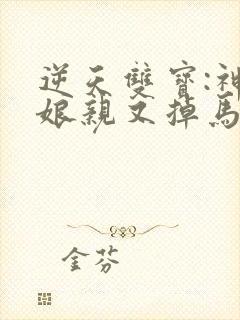 逆天雙寶:神
娘親又掉馬
金芬